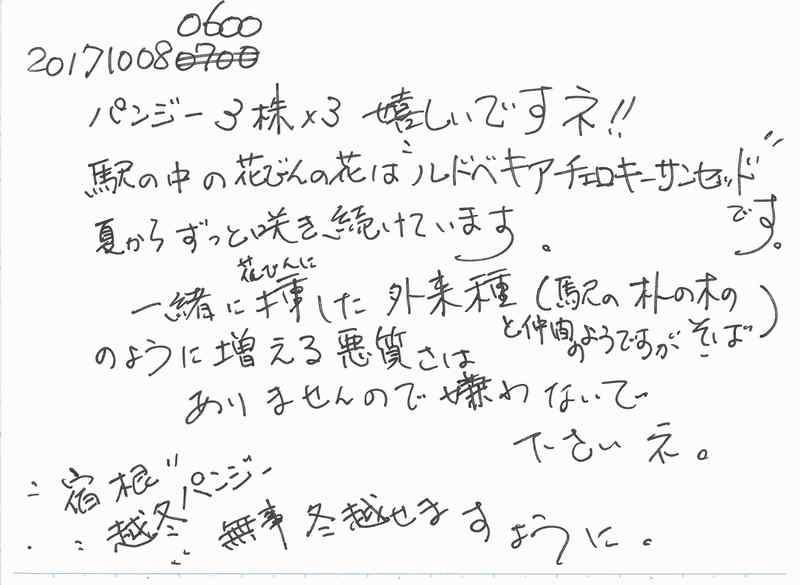 0600
201710080700
パンジー3株×3 嬉しいですネ!!
駅の中の花びんの花は"ルドベキアチェロキーサンセッド"
です。
夏からずっと咲き続けています。
花びんに
一緒に挿した外来種(駅の朴の木の
と仲間のようですが そば)
のように増える悪質さは
ありませんので嫌わないで
下さいネ。
"宿根"
"越冬"パンジー
無事冬越せますように。